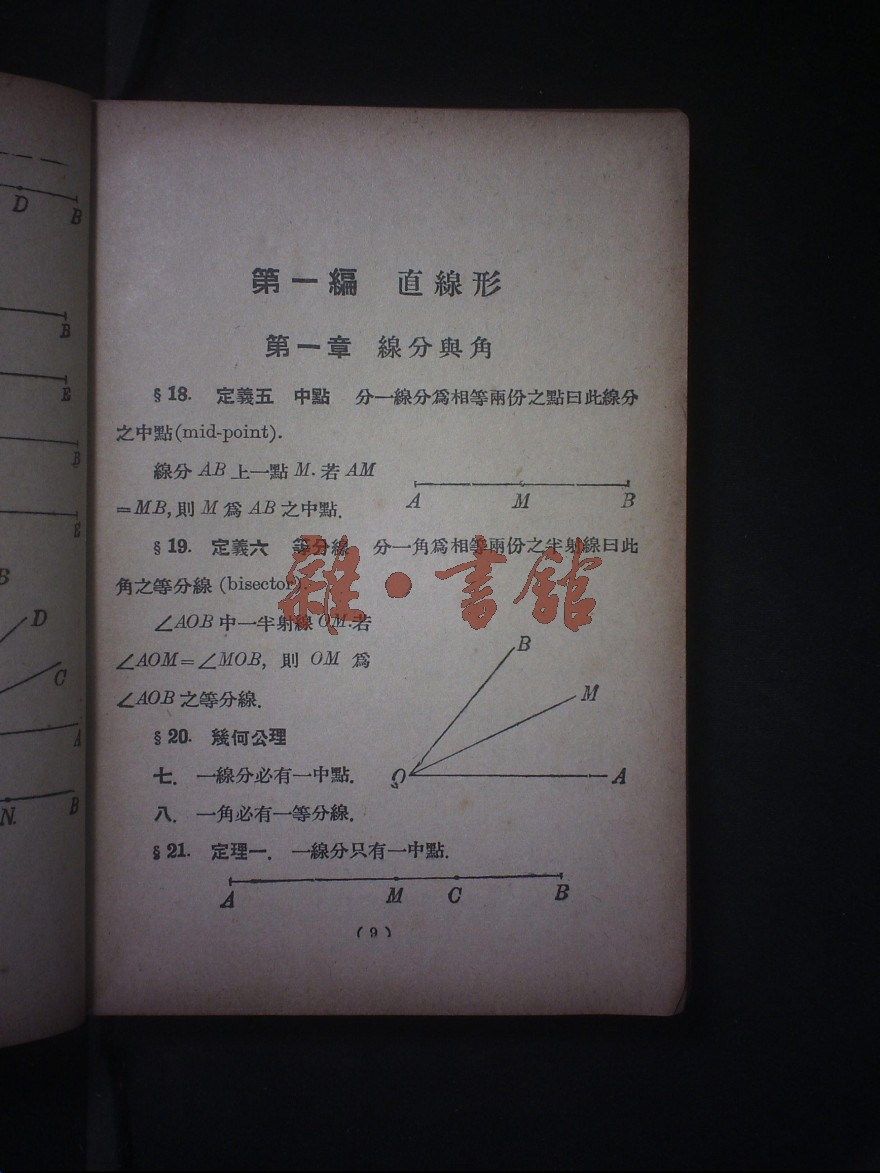 D
B
B
E
B
E
B
D
C
A
N.
B
第一編 直線形
第一章 線分與角
§18. 定義五 中點 分一線分爲相等兩份之點曰此線分
之中點(mid-point).
線分 AB 上一點 M. 若 AM
=MB, 則 M 爲 AB 之中點.
A M B
§19. 定義六 等分線 分一角爲相等兩份之半射線曰此
角之等分線 (bisector).
∠AOB 中一半射線 OM. 若
∠AOM=∠MOB, 則 OM 爲
∠AOB 之等分線.
B
M
O A
§20. 幾何公理
七. 一線分必有一中點.
八. 一角必有一等分線.
§21. 定理一. 一線分只有一中點.
A M C B
(9)
雜·書館